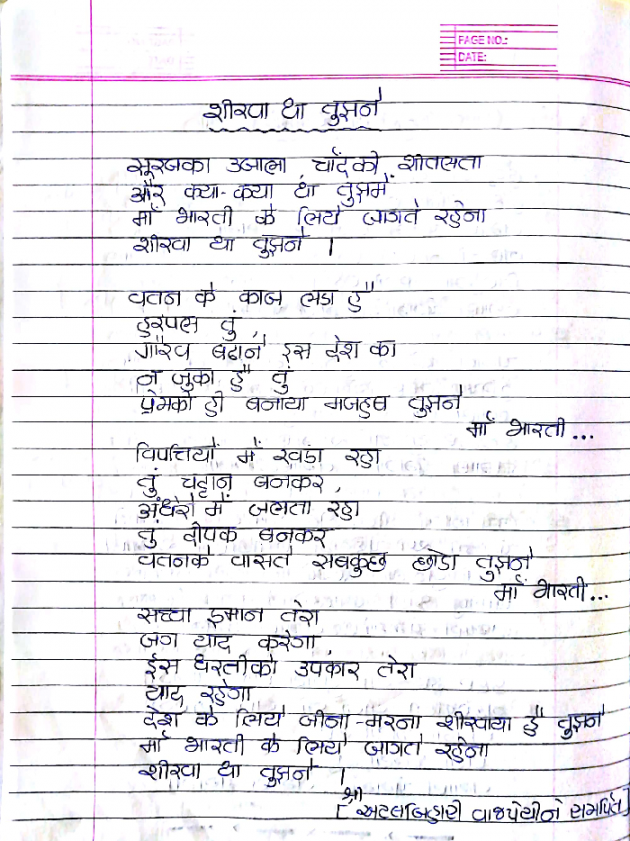 PAGE NO.:
DATE:
शीखा था तुझने
सूरजका उजाला, चाँदकी शीतलता
और क्या-क्या था तुझमें
माँ भारती के लिये जागते रहेना
शीखा था तुझने ।
वतन के काज लडा है
हरपल तुं,
गौरव बढाने इस देश का
न जुका है तुं
प्रेमको ही बनाया मजहब तुझने
माँ भारती...
विपत्तियों में खडा रहा
तुं चट्टान बनकर,
अंधेरो में जलता रहा
तुं दीपक बनकर
वतनके वासते सबकुछ छोडा तुझने
माँ भारती...
सच्चा इमान तेरा
जग याद करेगा
ईस धरतीको उपकार तेरा
याद रहेगा
देश के लिये जीना-मरना शीखाया है तुझने
माँ भारती के लिये जागते रहेना
शीखा था तुझने ।
[श्री अटलबिहारी वाजपेयीने समर्पित]